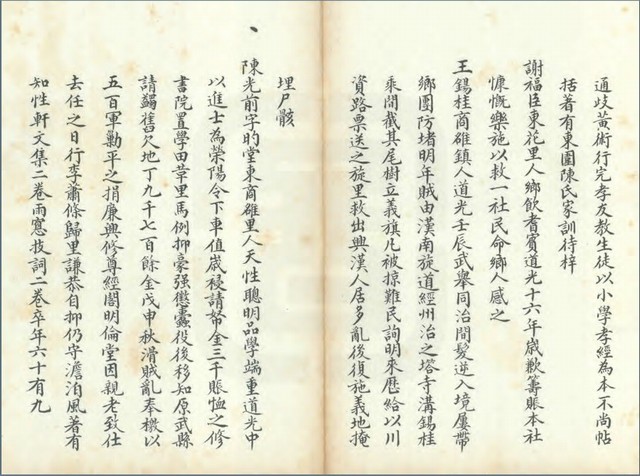 通歧黃術行完孝友教生徒以小學孝經為本不尚帖
括著有東園陳氏家訓待梓
謝福臣東花里人鄉飲耆賓道光十六年歲歉籌賬本社
慷慨樂施以救一社民命鄉人感之
王錫桂商雒鎮人道光壬辰武舉同治間髮逆入境屢帶
鄉團防堵明年賊由漢南旋道經州治之塔寺溝錫桂
乘間截其尾樹立義旗凡被掠難民詢明來歷給以川
資路票送之旋里救出興漢人居多亂後復施義地掩
埋尸骸
陳光前字昀堂東商雒里人天性聰明品學端重道光中
以進士為滎陽令下車值歲祲請帑金三千賬恤之修
書院置學田草里馬例抑豪强懲蠹役後移知原武縣
請蠲舊欠地丁九千七百餘金戊申秋滑賊亂奉檄以
五百軍勦平之捐廉興修尊經閣明倫堂因親老致仕
去任之日行李蕭條歸里謙恭自抑仍守澹泊風著有
知性軒文集二卷雨窻技詞二卷卒年六十有九